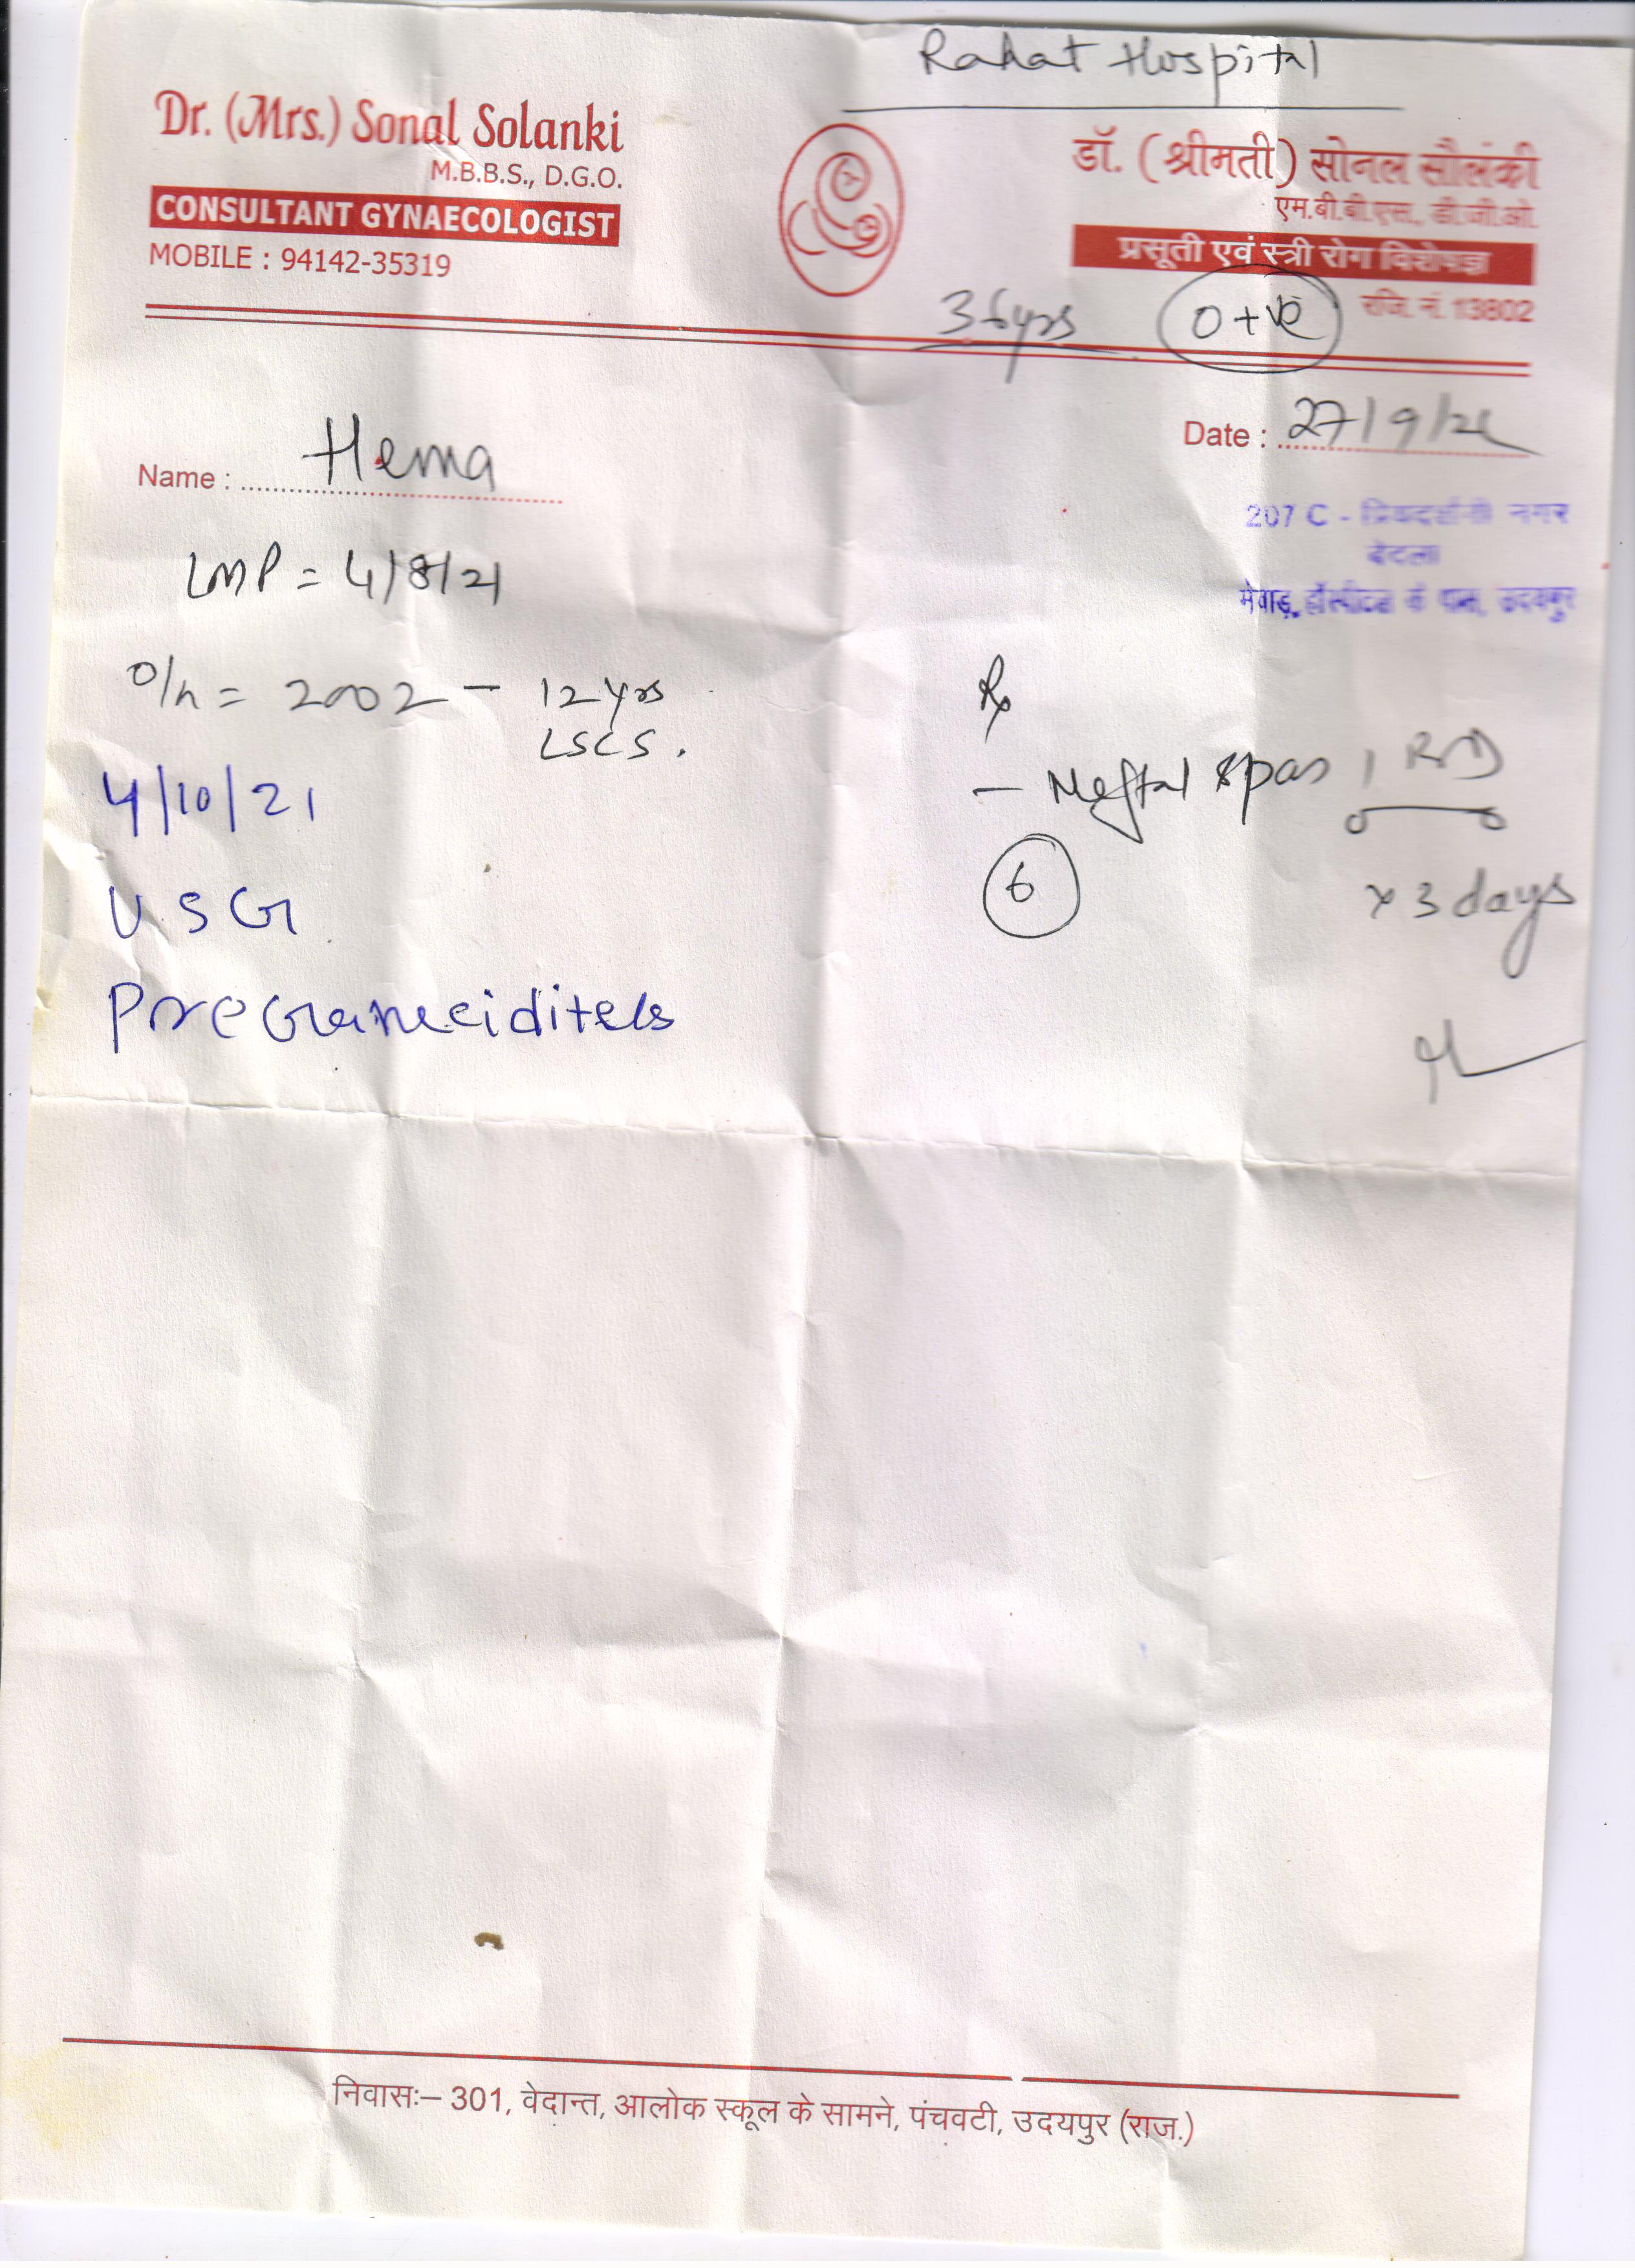 Rahat Hospital
Dr. (Mrs.) Sonal Solanki
M.B.B.S., D.G.O.
CONSULTANT GYNAECOLOGIST
MOBILE : 94142-35319
डॉ. (श्रीमती) सोनल सौलंकी
एम.बी.बी.एस., डी.जी.ओ.
प्रसूती एवं स्त्री रोग विशेषज्ञ
रजि. नं. 13802
36yrs O+ve
Date : 27/9/21
Name : Hema
207 C - प्रियदर्शनी नगर
बेदला
मेवाड़ हॉस्पीटल के पास, उदयपुर
LMP = 4/8/21
O/h = 2002 - 12 yrs
LSCS.
Rx
- Meftal spas 1 BD
6
x 3 days
4/10/21
USG
निवासः– 301, वेदान्त, आलोक स्कूल के सामने, पंचवटी, उदयपुर (राज.)